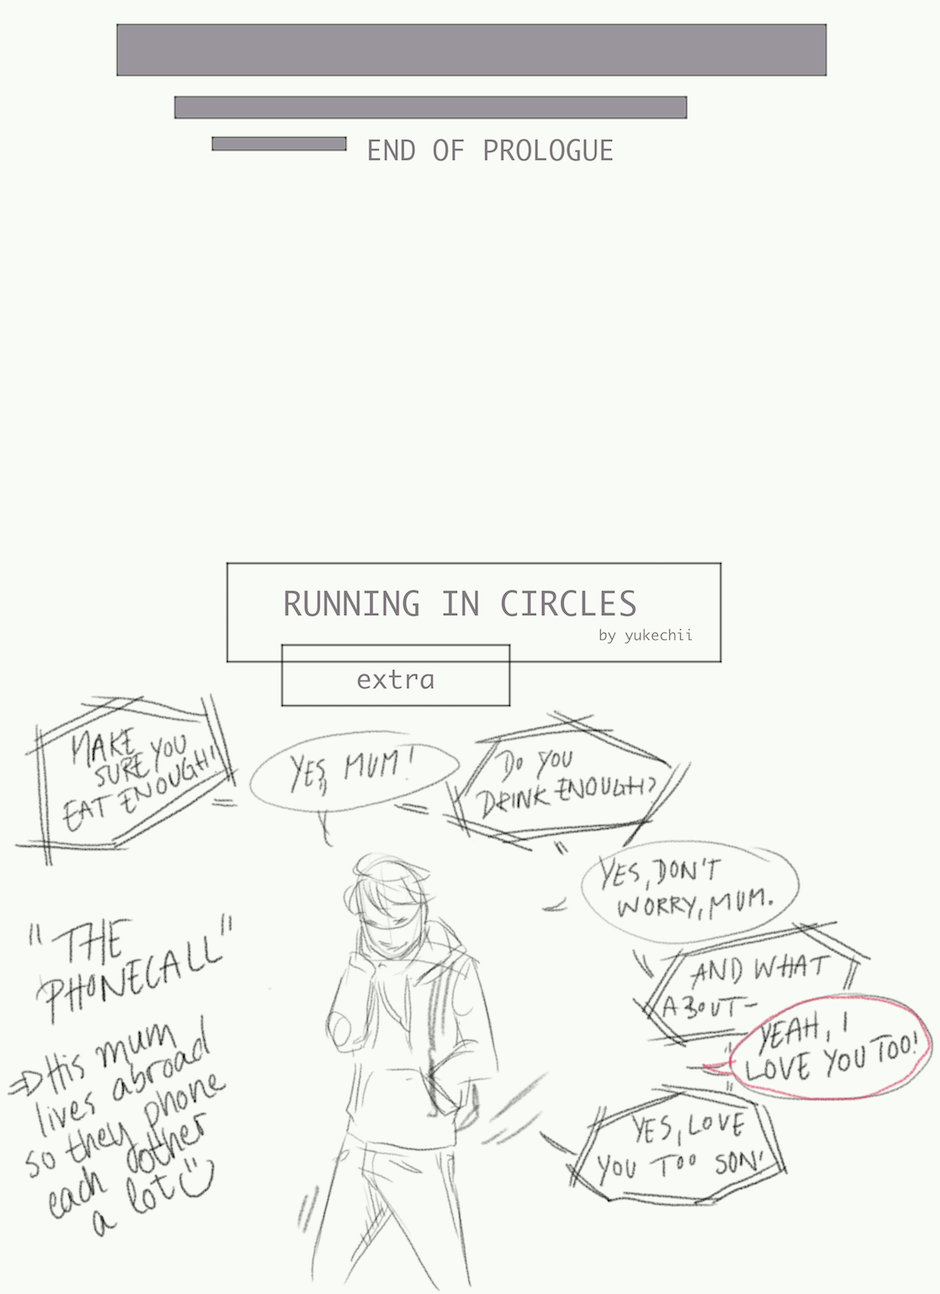 END OF PROLOGUE
RUNNING IN CIRCLES
by yukechii
extra
MAKE
SURE YOU
EAT ENOUGH!
YES, MUM!
DO YOU
DRINK ENOUGH?
YES, DON'T
WORRY, MUM.
AND WHAT
ABOUT-
YEAH, I
LOVE YOU TOO!
YES, LOVE
YOU TOO SON!
"THE
PHONECALL"
⇒ His mum
lives abroad
so they phone
each other
a lot :)